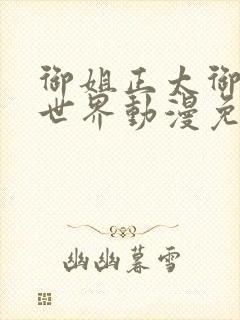 御姐正太御
世界動漫免
幽幽暮雪